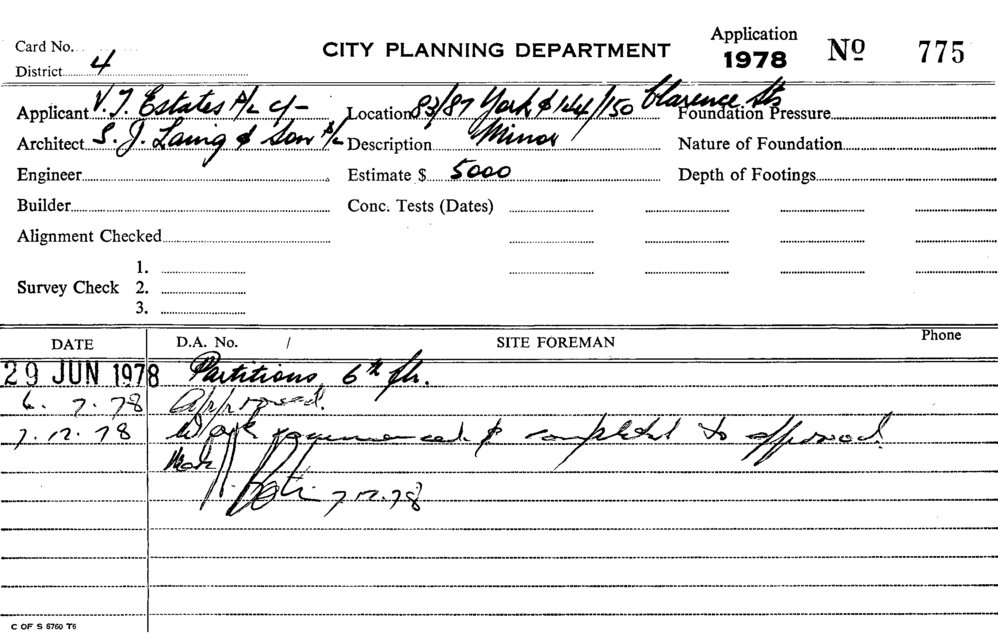 Card No.
CITY PLANNING DEPARTMENT
Application 1978 Nº 775
District 4
Applicant V. T. Estates P/L c/- Location 83/87 York & 144/150 Clarence Sts Foundation Pressure
Architect S. J. Laing & Son P/L Description Minor Nature of Foundation
Engineer Estimate $ 5000 Depth of Footings
Builder Conc. Tests (Dates)
Alignment Checked
1.
Survey Check 2.
3.
DATE D.A. No. / SITE FOREMAN Phone
29 JUN 1978 Partitions 6th flr.
6. 7. 78 Approved.
7. 12. 78 Work commenced & completed to approval
7.12.78
C OF S 6760 T6